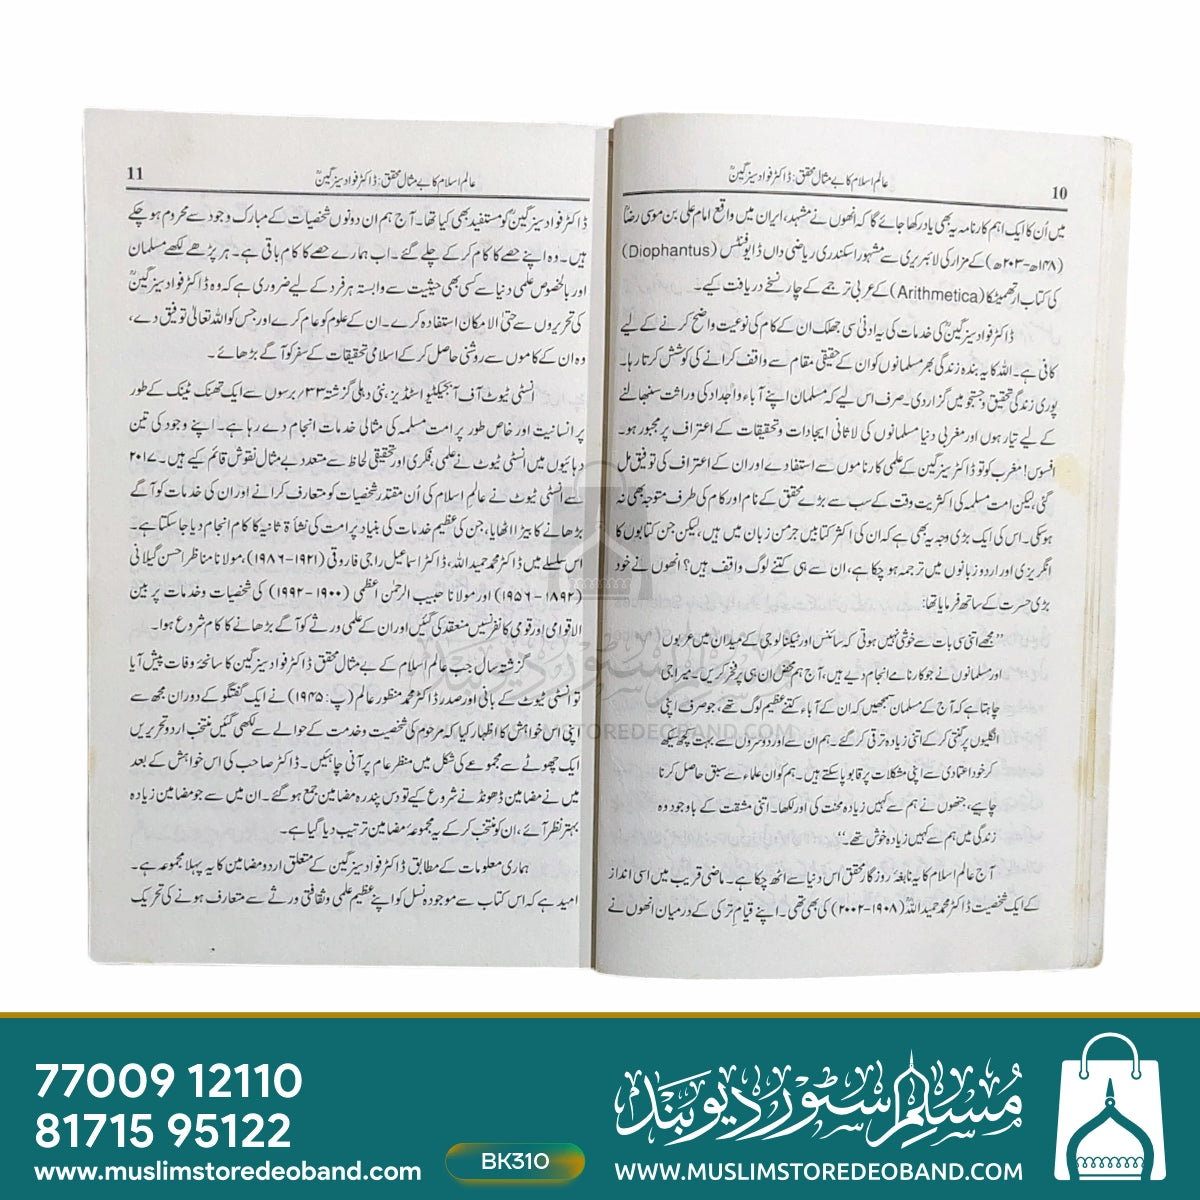 10
عالم اسلام کا بے مثال محقق: ڈاکٹر فواد سیزگینؒ
میں اُن کا ایک اہم کارنامہ یہ بھی یاد رکھا جائے گا کہ انھوں نے مشہد، ایران میں واقع امام علی بن موسی رضاؒ
(۱۴۸ھ-۲۰۳ھ) کے مزار کی لائبریری سے مشہور اسکندری ریاضی داں ڈایوفنٹس (Diophantus)
کی کتاب ارتھمیٹکا (Arithmetica) کے عربی ترجمے کے چار نسخے دریافت کیے۔
ڈاکٹر فواد سیزگینؒ کی خدمات کی یہ ادنیٰ سی جھلک ان کے کام کی نوعیت واضح کرنے کے لیے
کافی ہے۔ اللہ کا یہ بندہ زندگی بھر مسلمانوں کو ان کے حقیقی مقام سے واقف کرانے کی کوشش کرتا رہا۔
پوری زندگی تحقیق و جستجو میں گزار دی۔ صرف اس لیے کہ مسلمان اپنے آباء و اجداد کی وراثت سنبھالنے
کے لیے تیار ہوں اور مغربی دنیا مسلمانوں کی لاثانی ایجادات و تحقیقات کے اعتراف پر مجبور ہو۔
افسوس! مغرب کو تو ڈاکٹر سیزگین کے علمی کارناموں سے استفادے اور ان کے اعتراف کی توفیق مل
گئی، لیکن امت مسلمہ کی اکثریت وقت کے سب سے بڑے محقق کے نام اور کام کی طرف متوجہ بھی نہ
ہو سکی۔ اس کی ایک بڑی وجہ یہ بھی ہے کہ ان کی اکثر کتابیں جرمن زبان میں ہیں، لیکن جن کتابوں کا
انگریزی اور اردو زبانوں میں ترجمہ ہو چکا ہے، ان سے ہی کتنے لوگ واقف ہیں؟ انھوں نے خود
بڑی حسرت کے ساتھ فرمایا تھا:
’’مجھے اتنی سی بات سے خوشی نہیں ہوتی کہ سائنس اور ٹیکنالوجی کے میدان میں عربوں
اور مسلمانوں نے جو کارنامے انجام دیے ہیں، آج ہم محض ان ہی پر فخر کریں۔ میرا جی
چاہتا ہے کہ آج کے مسلمان سمجھیں کہ ان کے آباء کتنے عظیم لوگ تھے، جو صرف اپنی
انگلیوں پر گنتی کر کے اتنی زیادہ ترقی کر گئے۔ ہم ان سے اور دوسروں سے بہت کچھ سیکھ
کر خود اعتمادی سے اپنی مشکلات پر قابو پا سکتے ہیں۔ ہم کو ان علماء سے سبق حاصل کرنا
چاہیے، جنھوں نے ہم سے کہیں زیادہ محنت کی اور لکھا۔ اتنی مشقت کے باوجود وہ
زندگی میں ہم سے کہیں زیادہ خوش تھے۔‘‘
آج عالم اسلام کا یہ نابغۂ روزگار محقق اس دنیا سے اٹھ چکا ہے۔ ماضی قریب میں اسی انداز
کے ایک شخصیت ڈاکٹر محمد حمید اللہؒ (۱۹۰۸-۲۰۰۲) کی بھی تھی۔ اپنے قیام ترکی کے درمیان انھوں نے
11
عالم اسلام کا بے مثال محقق: ڈاکٹر فواد سیزگینؒ
ڈاکٹر فواد سیزگینؒ کو مستفید بھی کیا تھا۔ آج ہم ان دونوں شخصیات کے مبارک وجود سے محروم ہو چکے
ہیں۔ وہ اپنے حصے کا کام کر کے چلے گئے۔ اب ہمارے حصے کا کام باقی ہے۔ ہر پڑھے لکھے مسلمان
اور بالخصوص علمی دنیا سے کسی بھی حیثیت سے وابستہ ہر فرد کے لیے ضروری ہے کہ وہ ڈاکٹر فواد سیزگینؒ
کی تحریروں سے حتیٰ الامکان استفادہ کرے۔ ان کے علوم کو عام کرے اور جس کو اللہ تعالیٰ توفیق دے،
وہ ان کے کاموں سے روشنی حاصل کر کے اسلامی تحقیقات کے سفر کو آگے بڑھائے۔
انسٹی ٹیوٹ آف آبجیکٹیو اسٹڈیز، نئی دہلی گزشتہ ۳۳/ برسوں سے ایک تھنک ٹینک کے طور
پر انسانیت اور خاص طور پر امت مسلمہ کی مثالی خدمات انجام دے رہا ہے۔ اپنے وجود کی تین
دہائیوں میں انسٹی ٹیوٹ نے علمی، فکری اور تحقیقی لحاظ سے متعدد بے مثال نقوش قائم کیے ہیں۔ ۲۰۱۷
سے انسٹی ٹیوٹ نے عالم اسلام کی اُن مقتدر شخصیات کو متعارف کرانے اور ان کی خدمات کو آگے
بڑھانے کا بیڑا اٹھایا، جن کی عظیم خدمات کی بنیاد پر امت کی نشأۃ ثانیہ کا کام انجام دیا جا سکتا ہے۔
اس سلسلے میں ڈاکٹر محمد حمید اللہ، ڈاکٹر اسماعیل راجی فاروقی (۱۹۲۱-۱۹۸۶)، مولانا مناظر احسن گیلانی
(۱۸۹۲-۱۹۵۶) اور مولانا حبیب الرحمٰن اعظمی (۱۹۰۰-۱۹۹۲) کی شخصیات و خدمات پر بین
الاقوامی اور قومی کانفرنسیں منعقد کی گئیں اور ان کے علمی ورثے کو آگے بڑھانے کا کام شروع ہوا۔
گزشتہ سال جب عالم اسلام کے بے مثال محقق ڈاکٹر فواد سیزگین کا سانحۂ وفات پیش آیا
تو انسٹی ٹیوٹ کے بانی اور صدر ڈاکٹر محمد منظور عالم (پ: ۱۹۴۵) نے ایک گفتگو کے دوران مجھ سے
اپنی اس خواہش کا اظہار کیا کہ مرحوم کی شخصیت و خدمت کے حوالے سے لکھی گئیں منتخب اردو تحریریں
ایک چھوٹے سے مجموعے کی شکل میں منظر عام پر آنی چاہئیں۔ ڈاکٹر صاحب کی اس خواہش کے بعد
میں نے مضامین ڈھونڈنے شروع کیے تو دس پندرہ مضامین جمع ہو گئے۔ ان میں سے جو مضامین زیادہ
بہتر نظر آئے، ان کو منتخب کر کے یہ مجموعۂ مضامین ترتیب دیا گیا ہے۔
ہماری معلومات کے مطابق ڈاکٹر فواد سیزگین کے متعلق اردو مضامین کا یہ پہلا مجموعہ ہے۔
امید ہے کہ اس کتاب سے موجودہ نسل کو اپنے عظیم علمی و ثقافتی ورثے سے متعارف ہونے کی تحریک
مسلم سٹور دیوبند
WWW.MUSLIMSTOREDEOBAND.COM
77009 12110
81715 95122
www.muslimstoredeoband.com
BK310
مسلم سٹور دیوبند
WWW.MUSLIMSTOREDEOBAND.COM